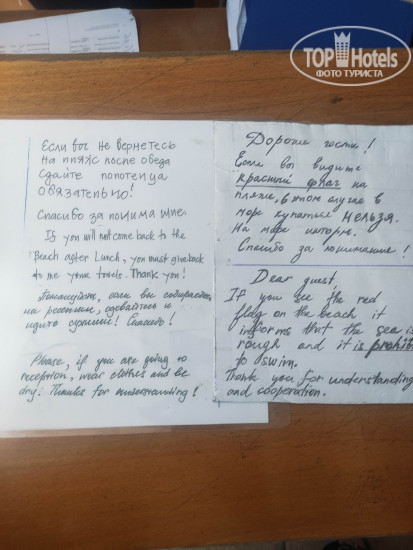 TOP Hotels
ФОТО ТУРИСТА
Если вы не вернетесь
на пляж после обеда
Сдайте полотенца
обязательно!
Спасибо за понимание.
If you will not come back to the
Beach after Lunch, you must give back
to me your towels. Thank you!
Пожалуйста, если вы собираетесь
на ресепшн, одевайтесь и
идите сухими! Спасибо!
Please, if you are going to
reception, wear clothes and be
dry! Thanks for understanding!
Дорогие гости!
Если вы видите
красный флаг на
пляже, в этом случае в
море купаться нельзя.
На море шторм.
Спасибо за понимание!
Dear guest,
If you see the red
flag on the beach it
informs that the sea is
rough and it is prohibi
to swim.
Thank you for understanding
and cooperation.